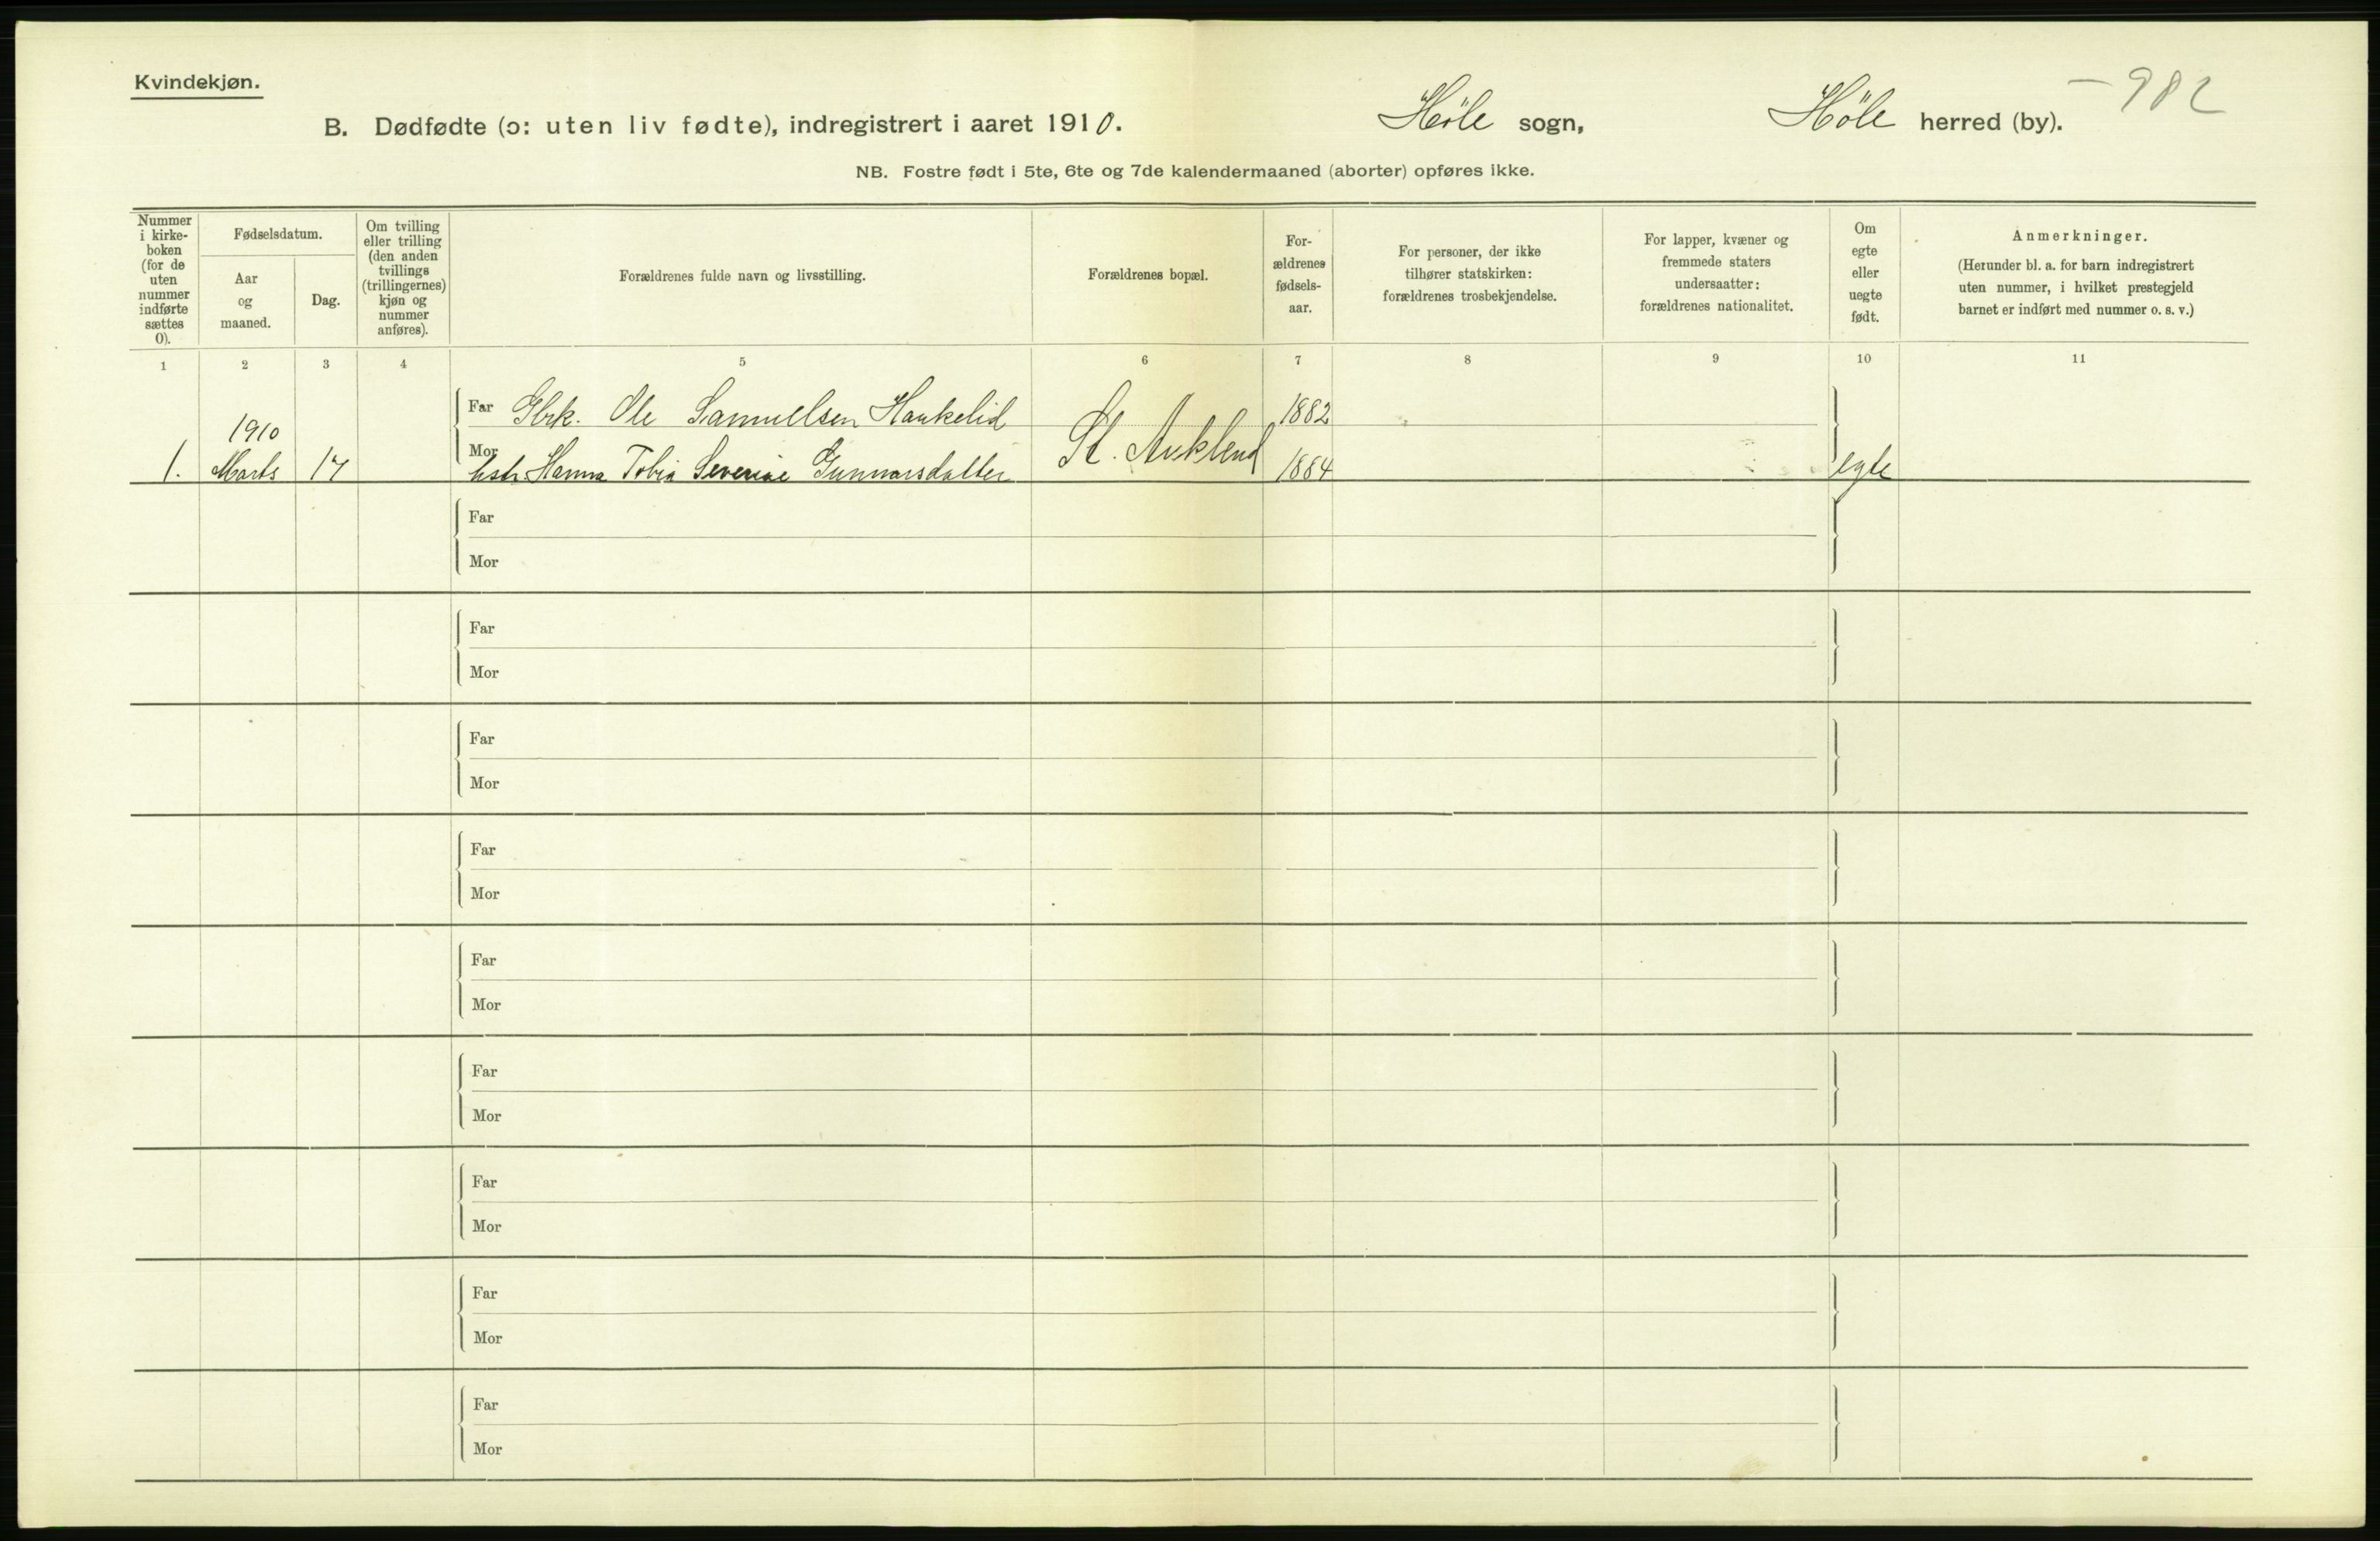 Kvindekjøn.
B. Dødfødte (ɔ: uten liv fødte), indregistrert i aaret 1910. Høle sogn, Høle herred (by). – 982
NB. Fostre født i 5te, 6te og 7de kalendermaaned (aborter) opføres ikke.
Nummer
i kirke-
boken
(for de
uten
nummer
indførte
sættes
0).
Fødselsdatum.
Aar
og
maaned.
Dag.
Om tvilling
eller trilling
(den anden
tvillings
(trillingernes)
kjøn og
nummer
anføres).
Forældrenes fulde navn og livsstilling.
Forældrenes bopæl.
For-
ældrenes
fødsels-
aar.
For personer, der ikke
tilhører statskirken:
forældrenes trosbekjendelse.
For lapper, kvæner og
fremmede staters
undersaatter:
forældrenes nationalitet.
Om
egte
eller
uegte
født.
Anmerkninger.
(Herunder bl. a. for barn indregistrert
uten nummer, i hvilket prestegjeld
barnet er indført med nummer o. s. v.)
1 2 3 4 5 6 7 8 9 10 11
Far Gbrk. Ole Samuelsen Haukelid 1882
1910
1. Marts 17 Mor Hanna Tobia Severine Gunnarsdatter St. Aukland 1884 egte
Far
Mor
Far
Mor
Far
Mor
Far
Mor
Far
Mor
Far
Mor
Far
Mor
Far
Mor
Far
Mor